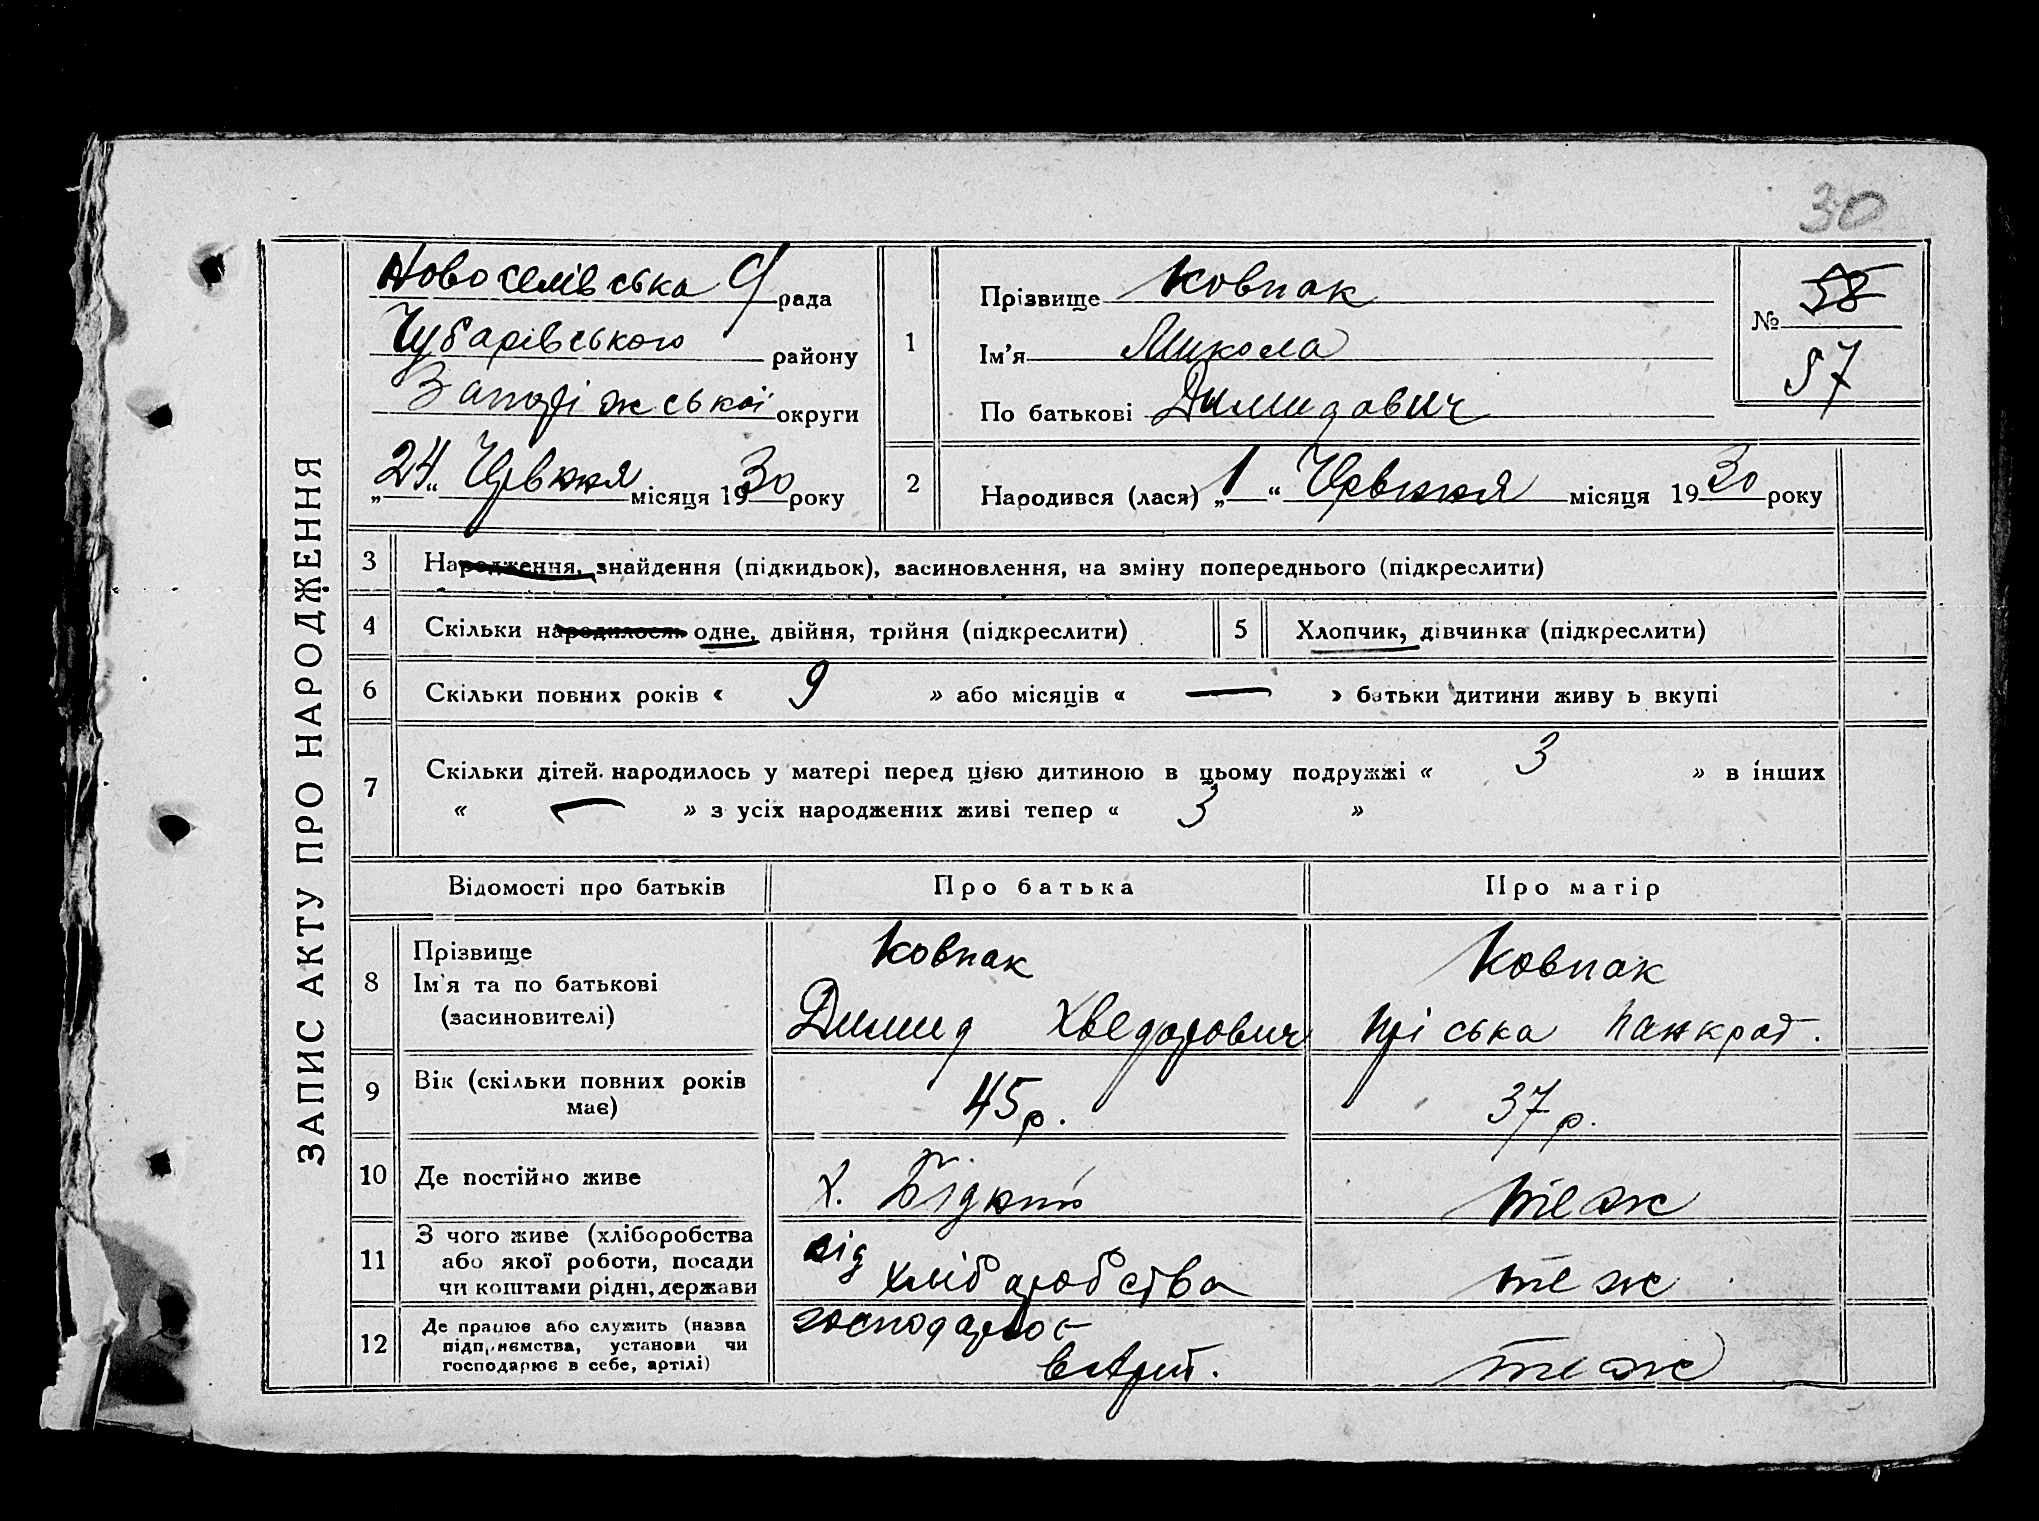 30
ЗАПИС АКТУ ПРО НАРОДЖЕННЯ
Новоселівська С/рада
Чубарівського району
Запоріжської округи
„24“ Червння місяця 1930 року
1
Прізвище Ковпак
Ім’я Микола
По батькові Димидович
№ 58
57
2
Народився (лася) „1“ Червння місяця 1930 року
3
Народження, знайдення (підкидьок), засиновлення, на зміну попереднього (підкреслити)
4
Скільки народилося: одне, двійня, трійня (підкреслити)
5
Хлопчик, дівчинка (підкреслити)
6
Скільки повних років « 9 » або місяців « — » батьки дитини живу ь вкупі
7
Скільки дітей народилось у матері перед цією дитиною в цьому подружжі « 3 » в інших
« — » з усіх народжених живі тепер « 3 »
Відомості про батьків
Про батька
Про матір
8
Прізвище
Ім’я та по батькові
(засиновителі)
Ковпак
Димид Хведорович
Ковпак
Пріська Панкрат.
9
Вік (скільки повних років
має)
45 р.
37 р.
10
Де постійно живе
х.
теж
11
З чого живе (хліборобства
або якої роботи, посади
чи коштами рідні, держави
від
хліборобства
теж
12
Де працює або служить (назва
підприємства, установи чи
господарює в себе, артілі)
господарює
в Арт.
теж